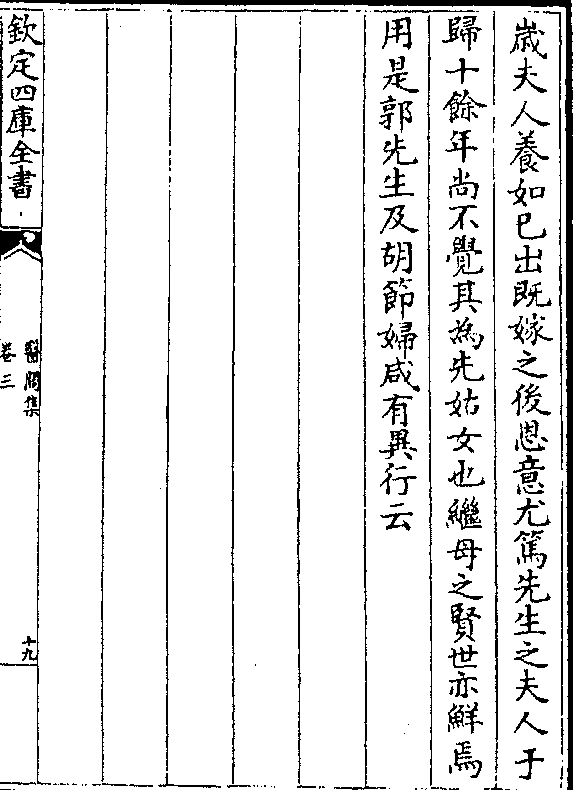 歳夫人養如已出既嫁之後恩意尤篤先生之夫人于
歸十餘年尚不覺其為先姑女也繼母之賢世亦鮮焉
用是郭先生及胡節婦咸有異行云
欽定四庫全書
醫閭集
卷三
十九